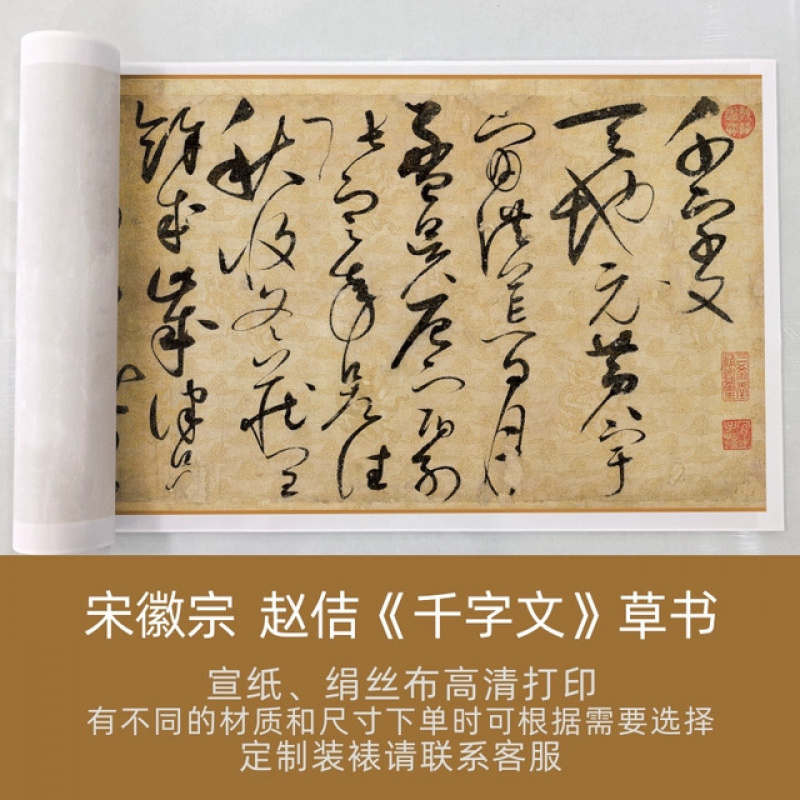 千字文
天地元黃宇
宙洪荒日月
盈昃辰宿列
張寒來暑往
秋收冬藏閏
餘成歲律呂
宋徽宗 赵佶《千字文》草书
宣纸、绢丝布高清打印
有不同的材质和尺寸下单时可根据需要选择
定制装裱请联系客服